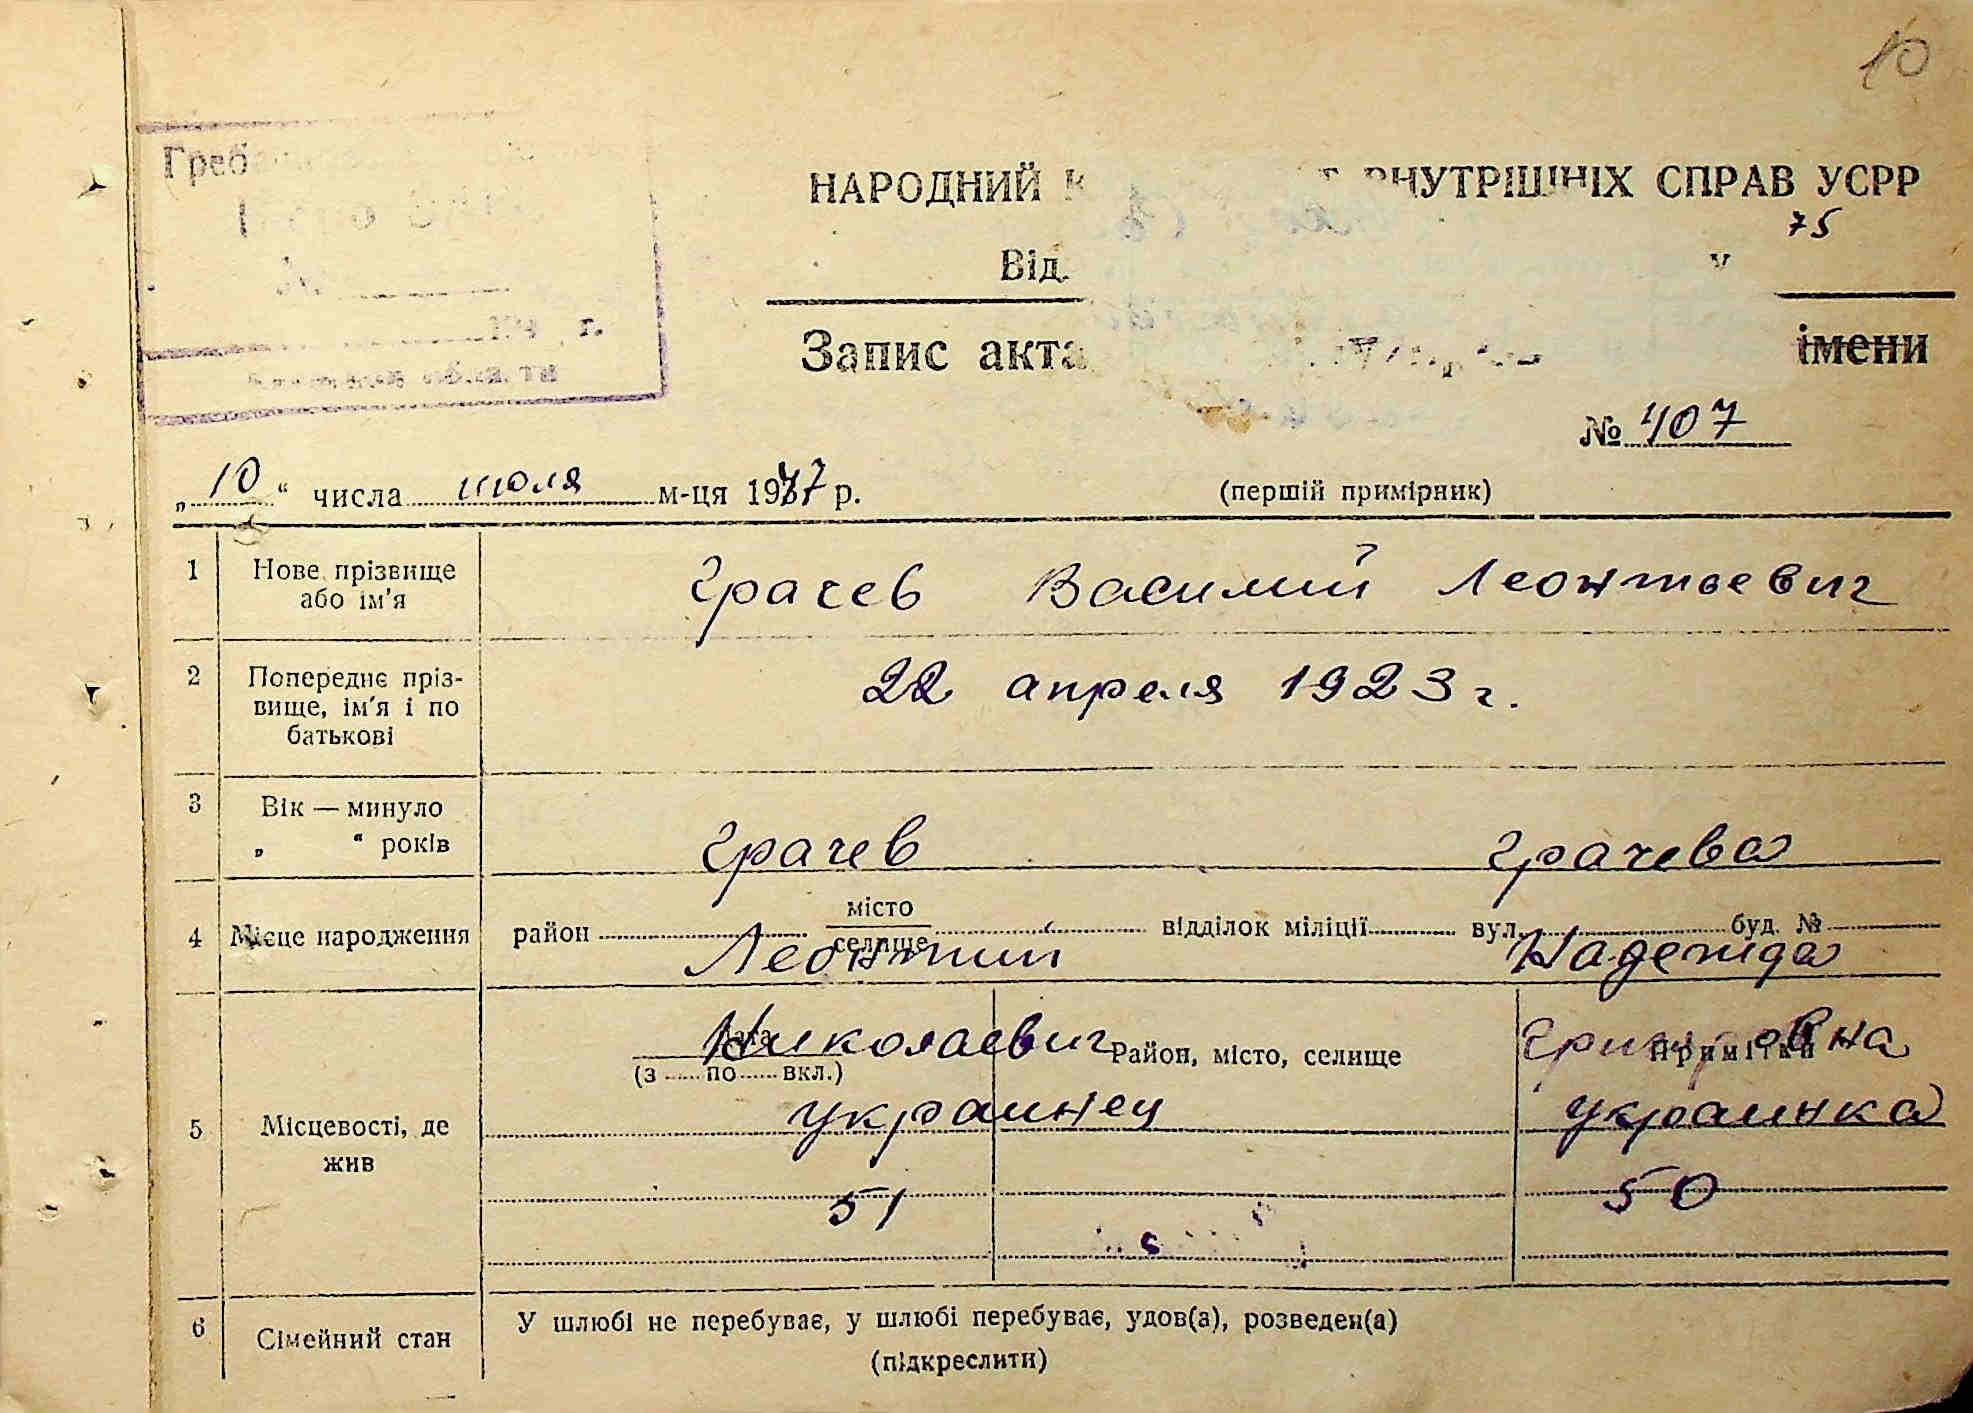 10
НАРОДНИЙ ВНУТРІШНІХ СПРАВ УСРР
75
Від.
Запис акта імени
№ 407
„ 10 “ числа июля м-ця 1947 р. (першій примірник)
1 Нове прізвище або ім'я Грачев Василий Леонтьевич
2 Попереднє пріз-
вище, ім'я і по
батькові
22 апреля 1923 г.
3 Вік — минуло
„ “ років
Грачев Грачева
4 Місце народження район місто селище відділок міліції вул. буд. №
Леонтий Надежда
Николаевич
(з по вкл.) Район, місто, селище Примітки
украинец украинка
5 Місцевості, де
жив
51 50
6 Сімейний стан У шлюбі не перебуває, у шлюбі перебуває, удов(а), розведен(а)
(підкреслити)